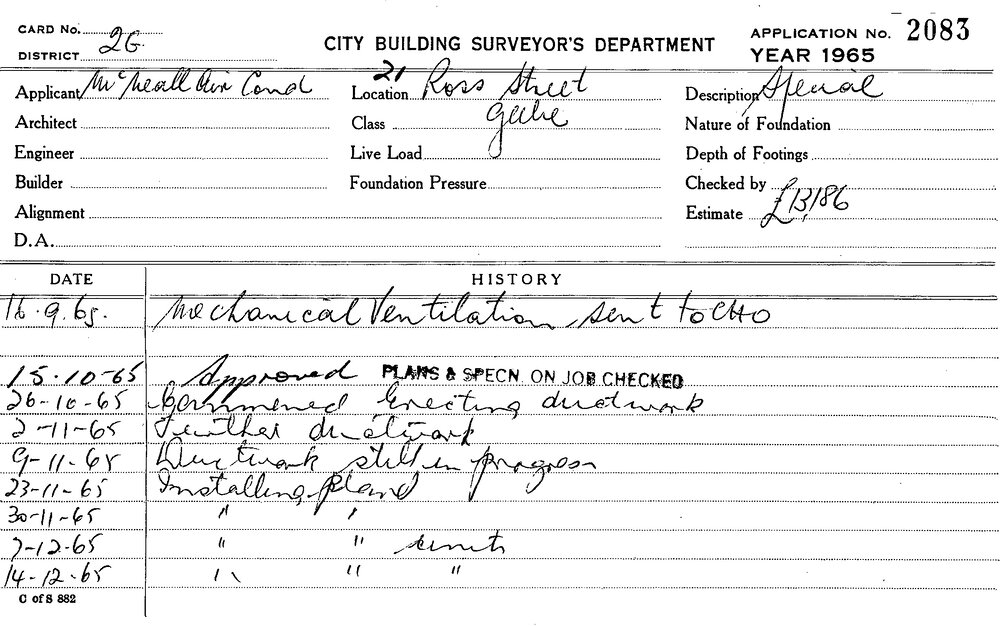 CARD No. 2G
DISTRICT
CITY BUILDING SURVEYOR'S DEPARTMENT
APPLICATION No. 2083
YEAR 1965
Applicant McNeall Air Cond
Location 21 Ross Street
Description Special
Architect
Class Glebe
Nature of Foundation
Engineer
Live Load
Depth of Footings
Builder
Foundation Pressure
Checked by
Alignment
Estimate £13,186
D.A.
DATE HISTORY
16.9.65. Mechanical Ventilation sent to CHO
15.10-65 Approved PLANS & SPECN. ON JOB CHECKED
26-10-65 Commenced Erecting ductwork
2-11-65 Further ductwork
9-11-65 Ductwork still in progress
23-11-65 Installing Plant
30-11-65 " "
7-12-65 " " units
14-12-65 " " "
C of S 882